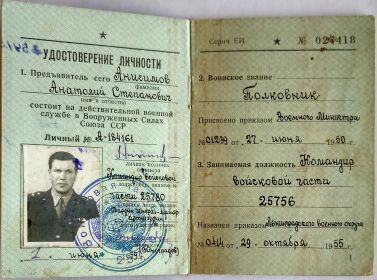 УДОСТОВЕРЕНИЕ ЛИЧНОСТИ
1. Предъявитель сего Анисимов
фамилия
Анатолий Степанович
имя и отчество
состоит на действительной военной
службе в Вооруженных Силах
Союза ССР
Личный № А-184161
личная подпись
офицера
Командир войсковой
части 25780
1 июня
Серия ЕИ ★ № 027418
2. Воинское звание
Полковник
Присвоено приказом Военного Министра
№ 01239 от 27. июня 1950 г.
3. Занимаемая должность Командир
войсковой части
25756
Назначен приказом Ленинградского военного округа
№ 0414 от 29. октября 1955 г.